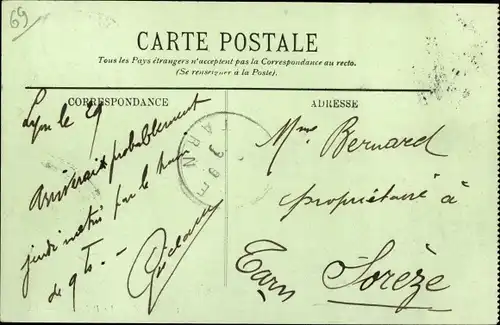 69
CARTE POSTALE
Tous les Pays étrangers n'acceptent pas la Correspondance au recto.
(Se renseigner à la Poste).
CORRESPONDANCE
ADRESSE
Lyon le 29
arriverai probablement
jeudi matin par le train
de 9h. -
TARN
Mme Bernard
propriétaire à
Sorèze
Tarn